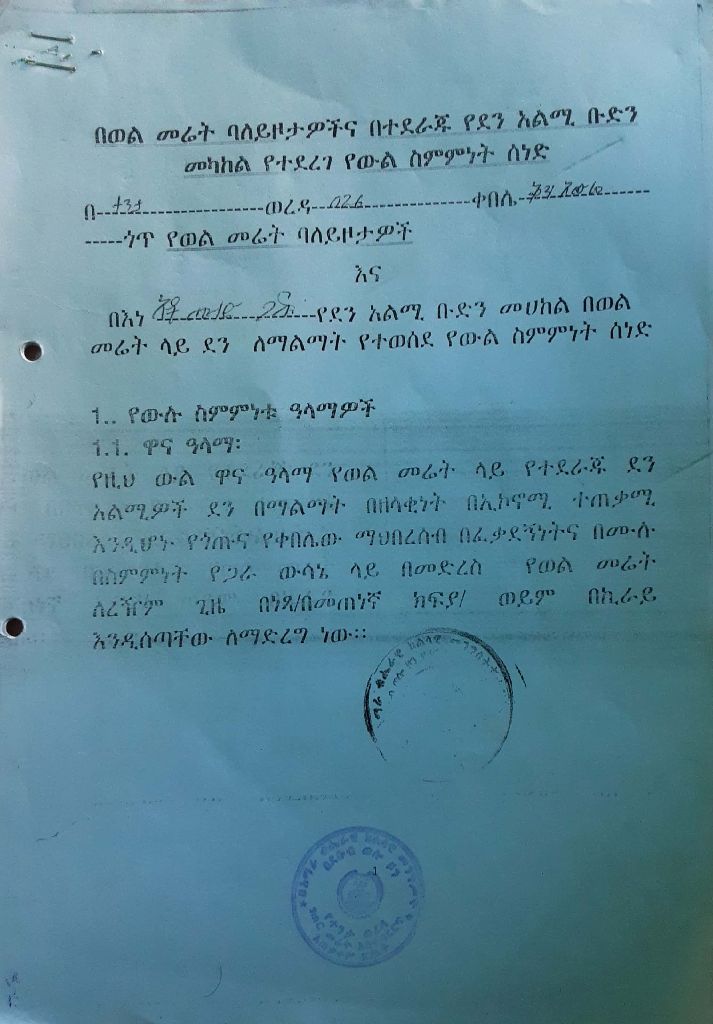 በወል መሬት ባለይዞታዎችና በተደራጁ የደን አልሚ ቡድን
መካከል የተደረገ የውል ስምምነት ሰነድ
በ--ታንታ------------------ወረዳ---022----------------ቀበሌ-------
-----ጎጥ የወል መሬት ባለይዞታዎች
እና
በእነ ------------------የደን አልሚ ቡድን መሀከል በወል
መሬት ላይ ደን ለማልማት የተወሰደ የውል ስምምነት ሰነድ
1.. የውሉ ስምምነቱ ዓላማዎች
1.1. ዋና ዓላማ፡
የዚህ ውል ዋና ዓላማ የወል መሬት ላይ የተደራጁ ደን
አልሚዎች ደን በማልማት በዘላቂነት በኢኮኖሚ ተጠቃሚ
እንዲሆኑ የጎጡና የቀበሌው ማህበረሰብ በፈቃደኝነትና በሙሉ
በስምምነት የጋራ ውሳኔ ላይ በመድረስ የወል መሬት
ለረዥም ጊዜ በነጻ/በመጠነኛ ክፍያ/ ወይም በኪራይ
እንዲሰጣቸው ለማድረግ ነው።
1